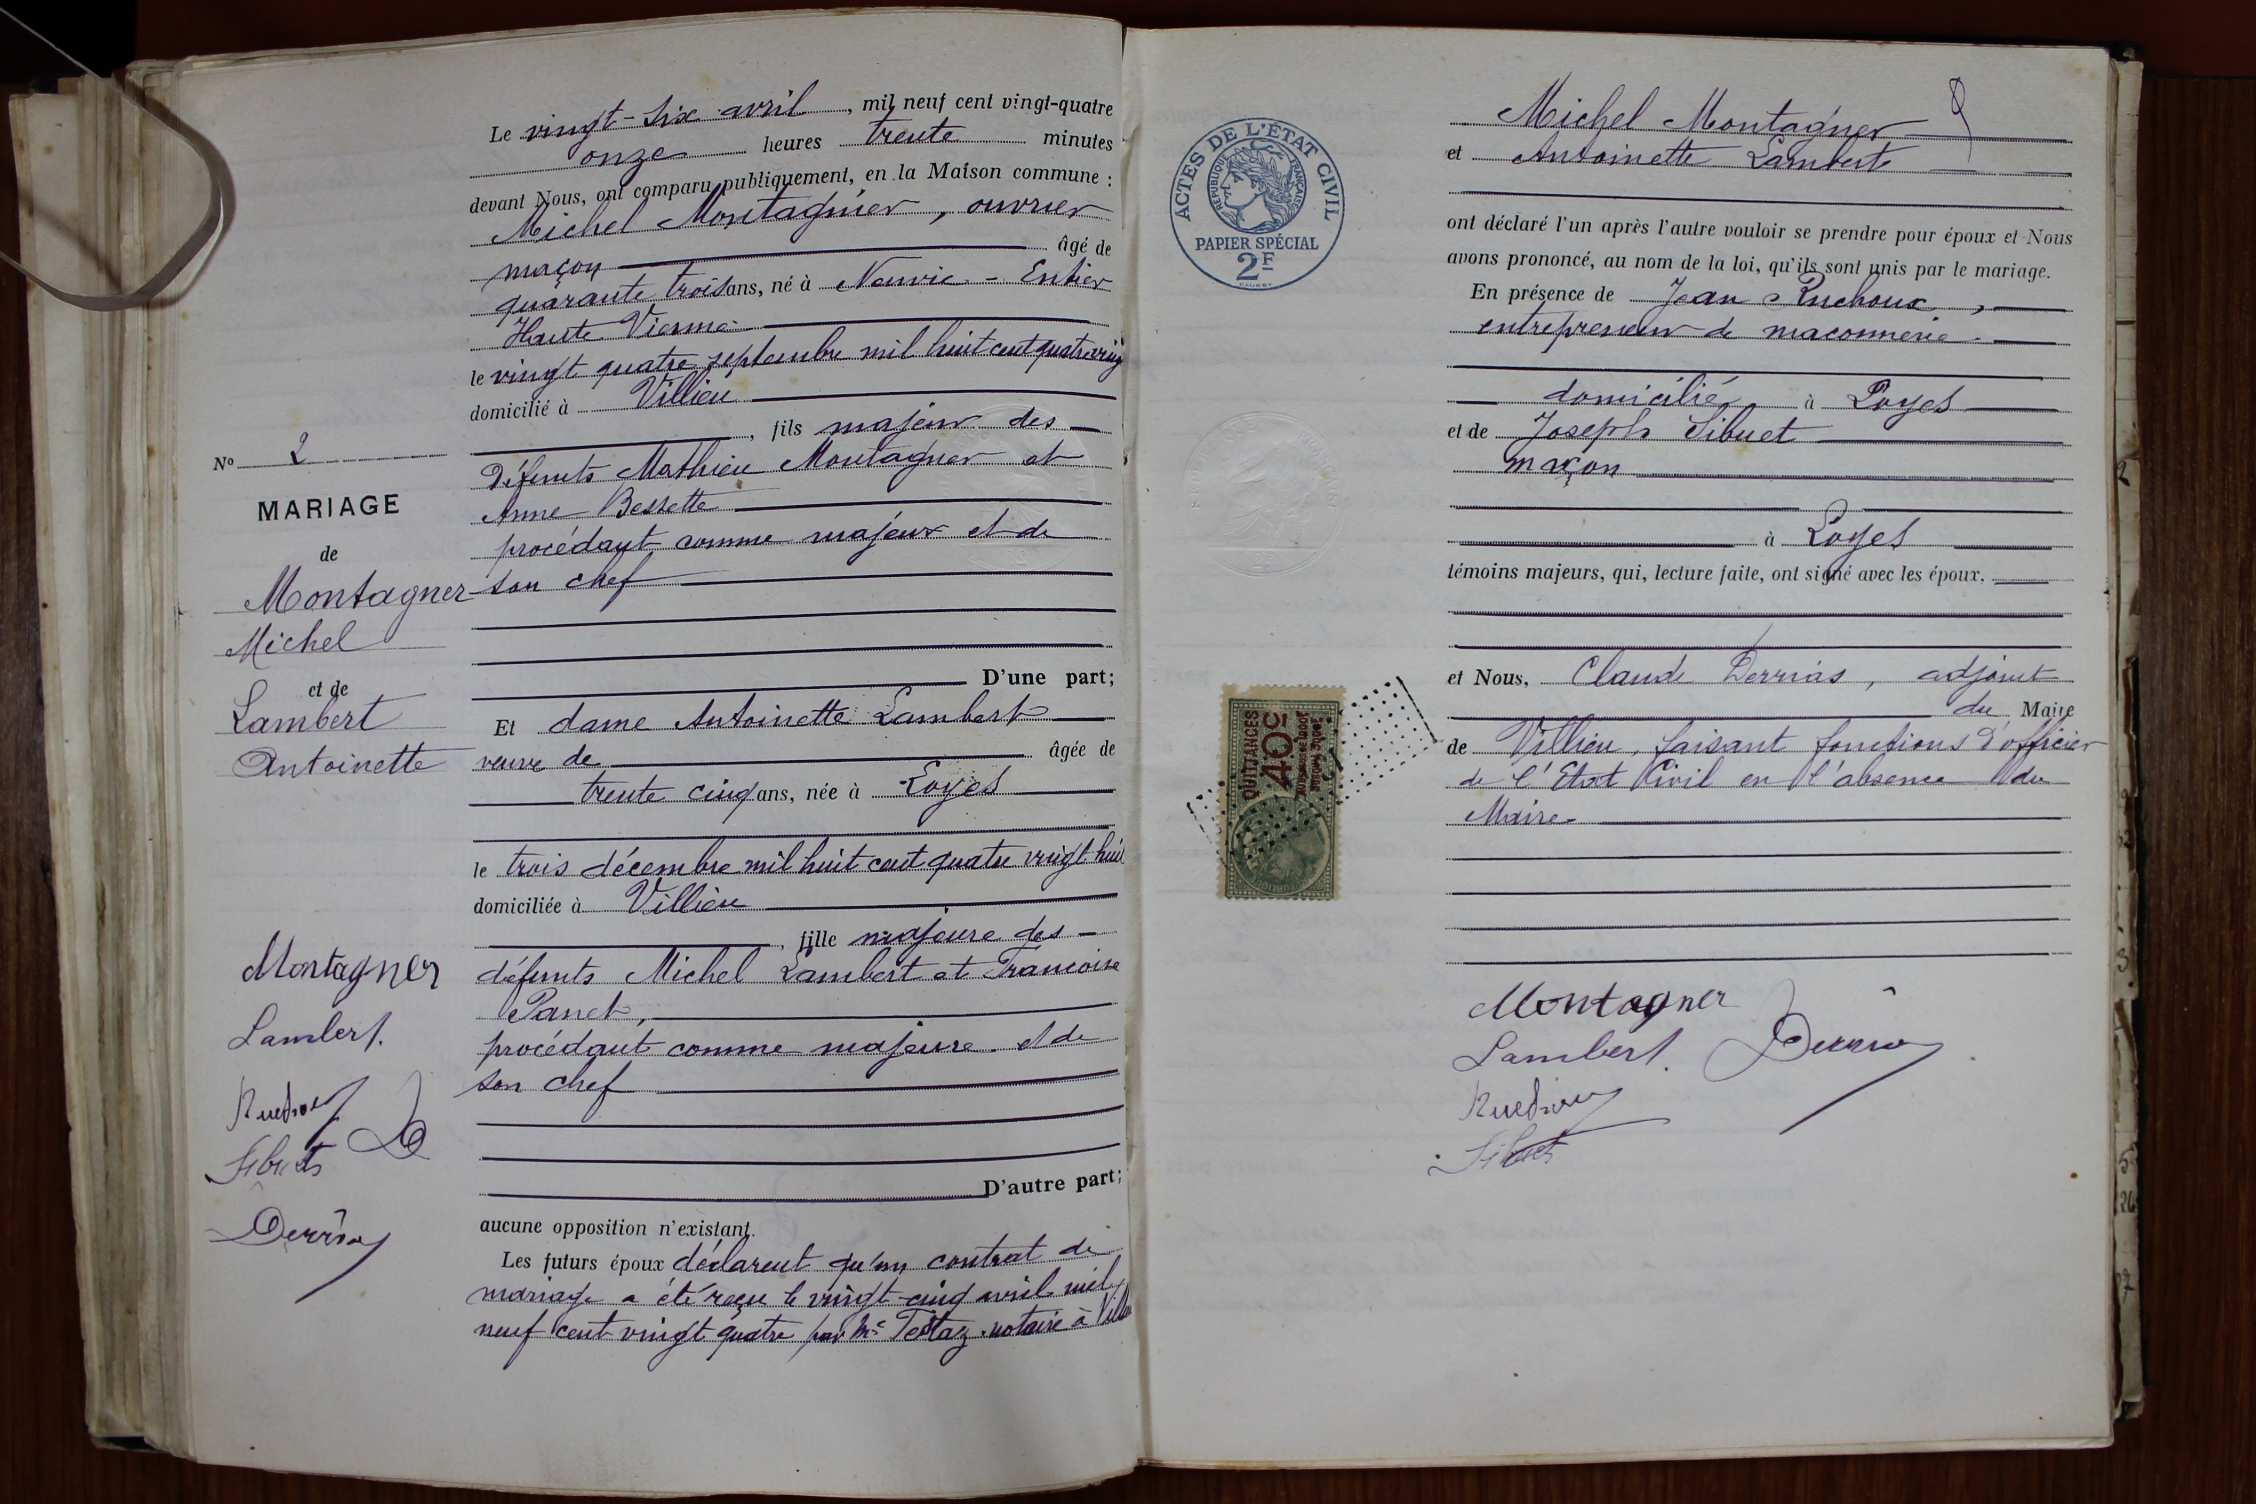 Le vingt-six avril, mil neuf cent vingt-quatre
onze heures trente minutes
devant Nous, ont comparu publiquement, en la Maison commune :
Michel Montagnier, ouvrier
maçon âgé de
quarante trois ans, né à Neuvic-Entier
Haute Vienne
le vingt quatre septembre mil huit cent quatre vingt
domicilié à Villieu
, fils majeur des
défunts Mathieu Montagner et
Anne Bessette
procédant comme majeur et de
son chef
D'une part;
Et dame Antoinette Lambert
veuve de âgée de
trente cinq ans, née à Loyes
le trois décembre mil huit cent quatre vingt huit
domiciliée à Villieu
, fille majeure des
défunts Michel Lambert et Francoise
Panet,
procédant comme majeure et de
son chef
D'autre part;
aucune opposition n'existant.
Les futurs époux déclarent qu'un contrat de
mariage a été reçu le vingt-cinq avril mil
neuf cent vingt quatre par Mc Testaz notaire à
N° 2
MARIAGE
de
Montagner
Michel
et de
Lambert
Antoinette
Montagner
Lambert.
Ruchoux
Sibuet
Derrias
ACTES DE L'ÉTAT CIVIL
RÉPUBLIQUE FRANÇAISE
PAPIER SPÉCIAL
2F
QUITTANCES
40c
Michel Montagner
et Antoinette Lambert
ont déclaré l'un après l'autre vouloir se prendre pour époux et Nous
avons prononcé, au nom de la loi, qu'ils sont unis par le mariage.
En présence de Jean Ruchoux,
entrepreneur de maconnerie
domicilié à Loyes
et de Joseph Sibuet
maçon
à Loyes
témoins majeurs, qui, lecture faite, ont signé avec les époux.
et Nous, Claude Derrias, adjoint
du Maire
de Villieu, faisant fonctions d'officier
de l'Etat Civil en l'absence du
Maire
Montagner
Lambert.
Derrias
Ruchoux
Sibuet